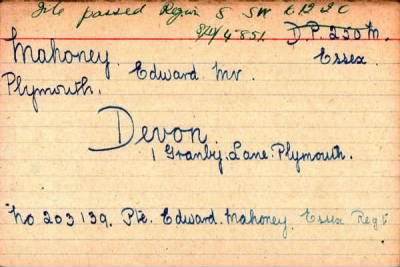 File passed Regin S SW
8/24/4851. D.P. 250 M.
Mahoney. Essex.
Edward Mr.
Plymouth.
Devon
1 Granby Lane Plymouth.
No 203139. Pte. Edward. Mahoney. Essex Regt